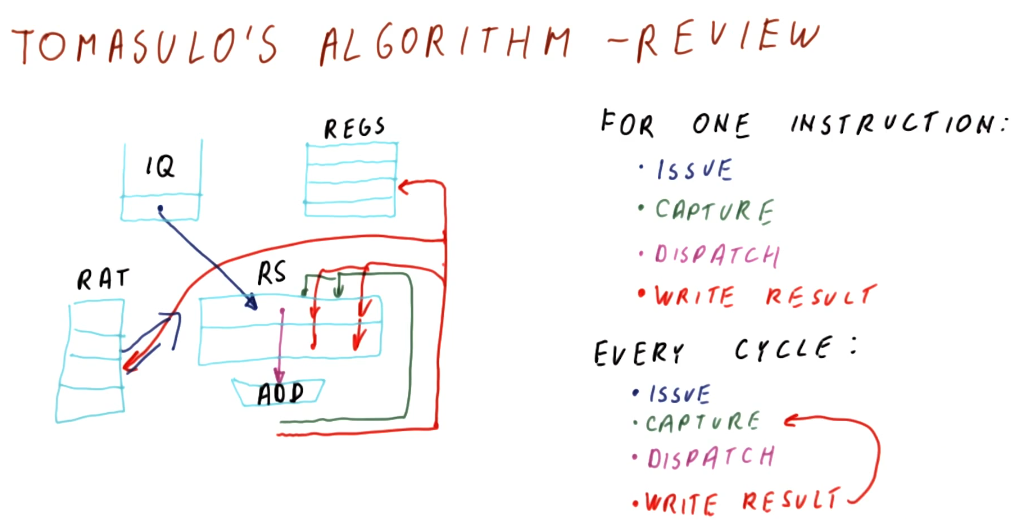 TOMASULO'S ALGORITHM - REVIEW
IQ
REGS
RAT
RS
ADD
FOR ONE INSTRUCTION:
• ISSUE
• CAPTURE
• DISPATCH
• WRITE RESULT
EVERY CYCLE:
• ISSUE
• CAPTURE
• DISPATCH
• WRITE RESULT